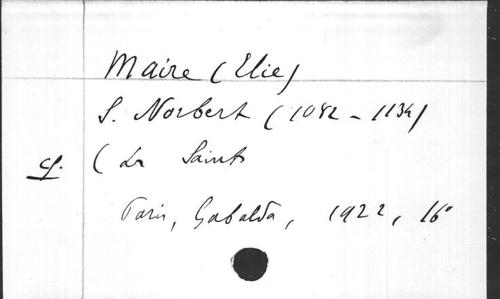 Maire (Elie)
S. Norbert (1082 - 1134)
cf. (Les Saints
Paris, Gabalda, 1922, 16°